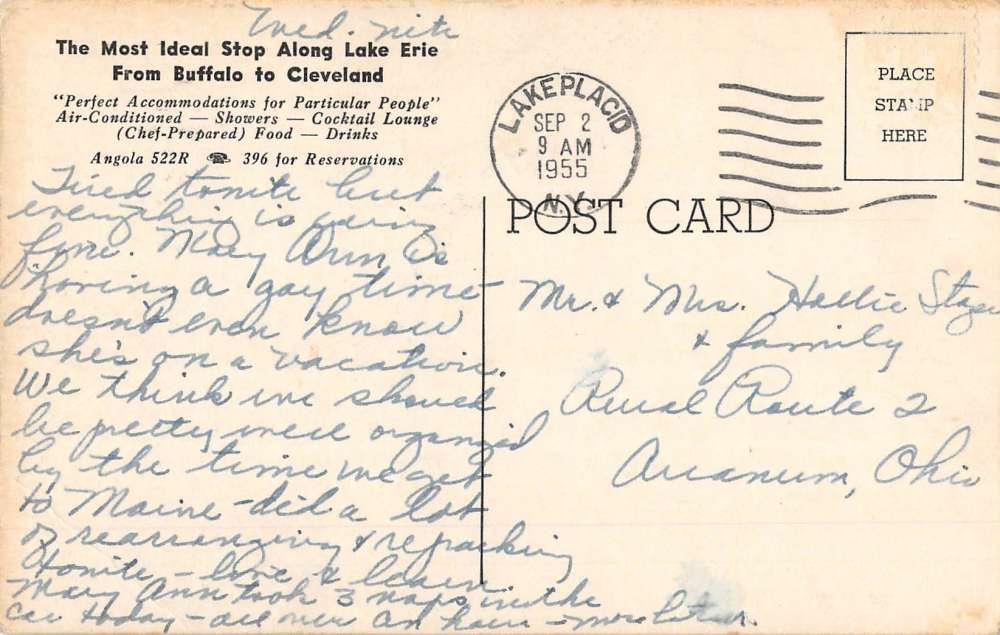 Wed. nite
The Most Ideal Stop Along Lake Erie
From Buffalo to Cleveland
"Perfect Accommodations for Particular People"
Air-Conditioned — Showers — Cocktail Lounge
(Chef-Prepared) Food — Drinks
Angola 522R ☎ 396 for Reservations
Tired tonite but
everything is going
fine. Mary Ann is
having a gay time
doesn't even know
she's on a vacation.
We think we should
be pretty well organized
by the time we get
to Maine - did a lot
of rearranging & repacking
tonite - live & learn.
Mary Ann took 3 naps in the
car today - all over an hour - more later.
LAKE PLACID
SEP 2
9 AM
1955
N.Y.
PLACE
STAMP
HERE
POST CARD
Mr. & Mrs. Hollie
& family
Rural Route 2
Arcanum, Ohio